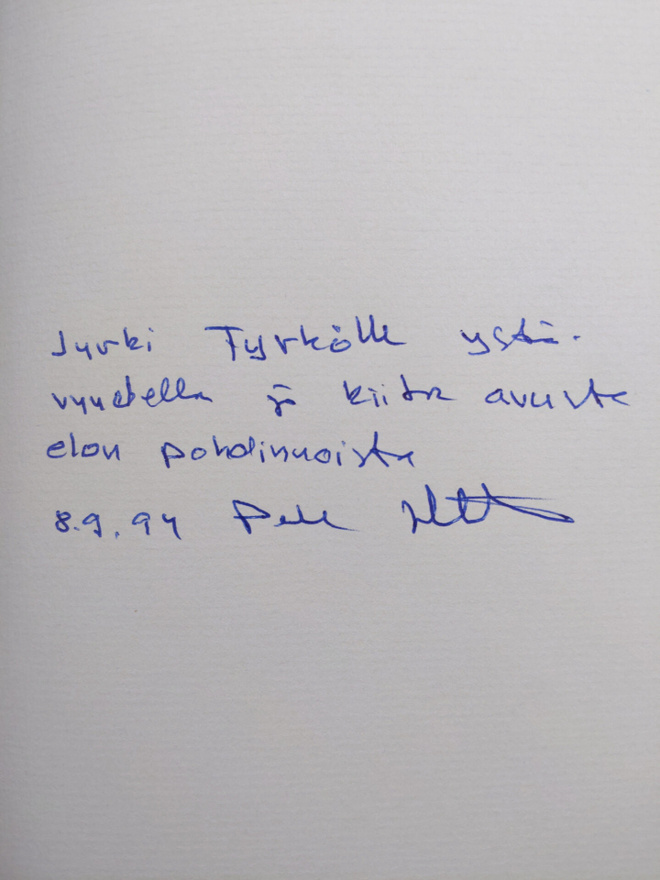 Jyrki Tyrkölle ystä-
vyydellä ja kiitos avusta
elon pohdinnoista
8.9.94